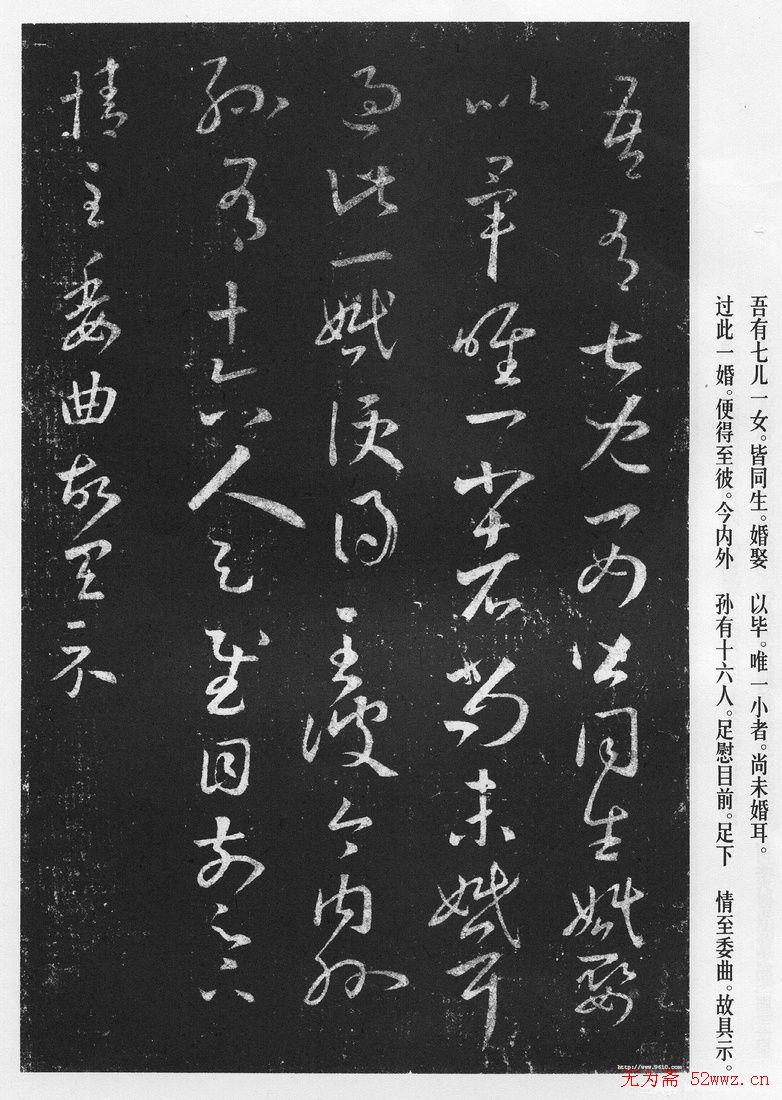 吾有七儿一女皆同生婚娶
以毕唯一小者尚未婚耳
过此一婚便得至彼今内外
孙有十六人足慰目前足下
情至委曲故具示
吾有七儿一女。皆同生。婚娶 以毕。唯一小者。尚未婚耳。
过此一婚。便得至彼。今内外 孙有十六人。足慰目前。足下 情至委曲。故具示。
http://www.9610.com
无为斋 52wwz.cn